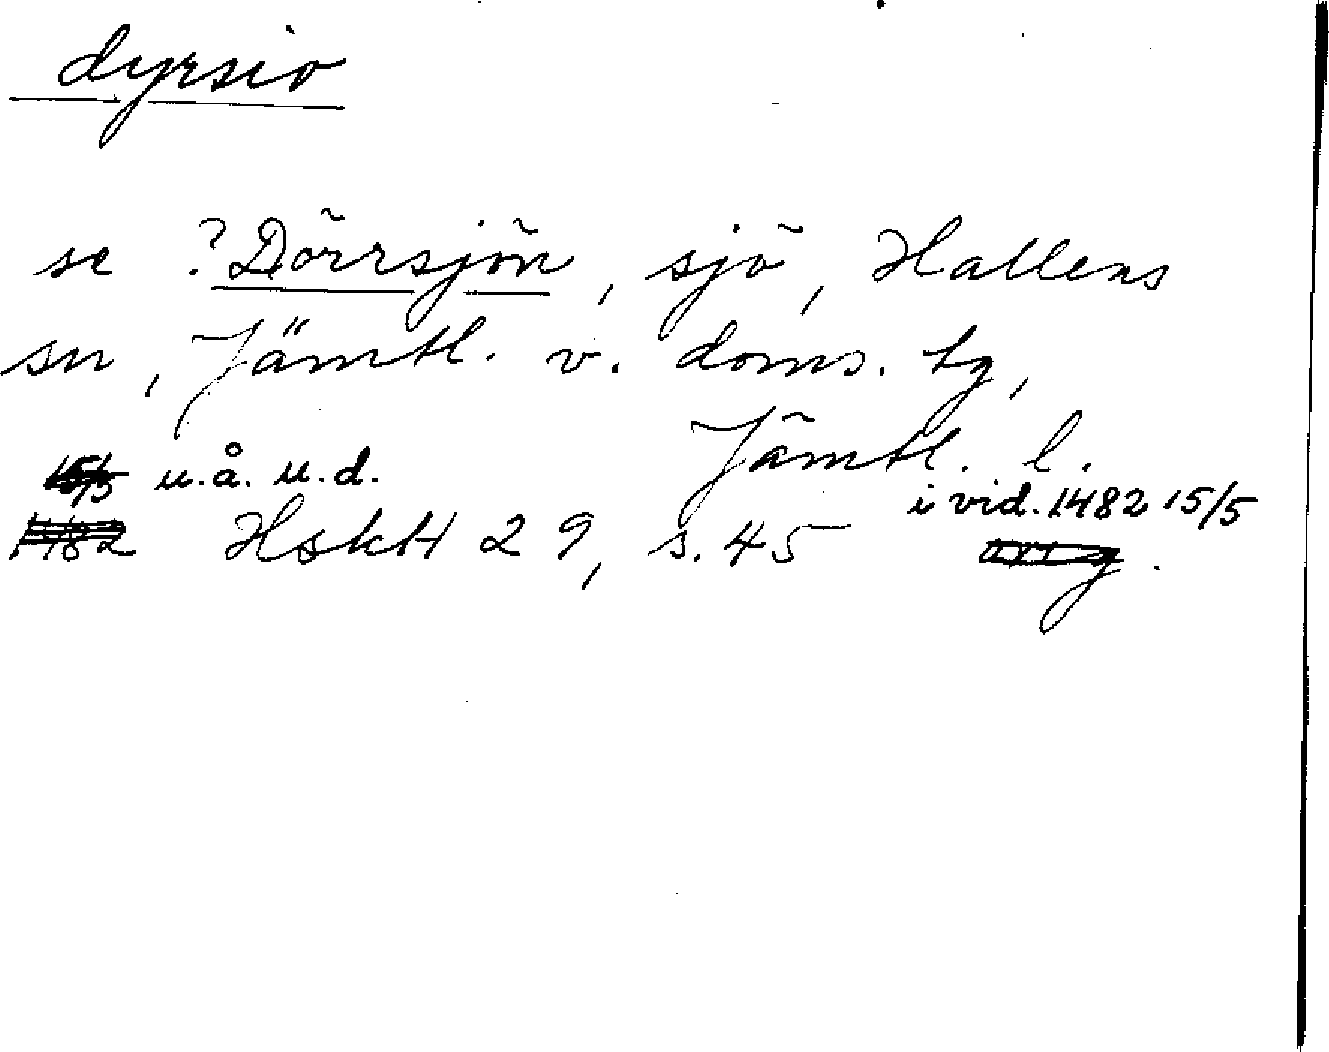 dyrsio
se ? Dörrsjön, sjö, Hallens
sn, Jämtl. v. doms. tg,
Jämtl. l.
15/5 u.å. u.d.
i vid. 1482 15/5
1482 HskH 29, s. 45